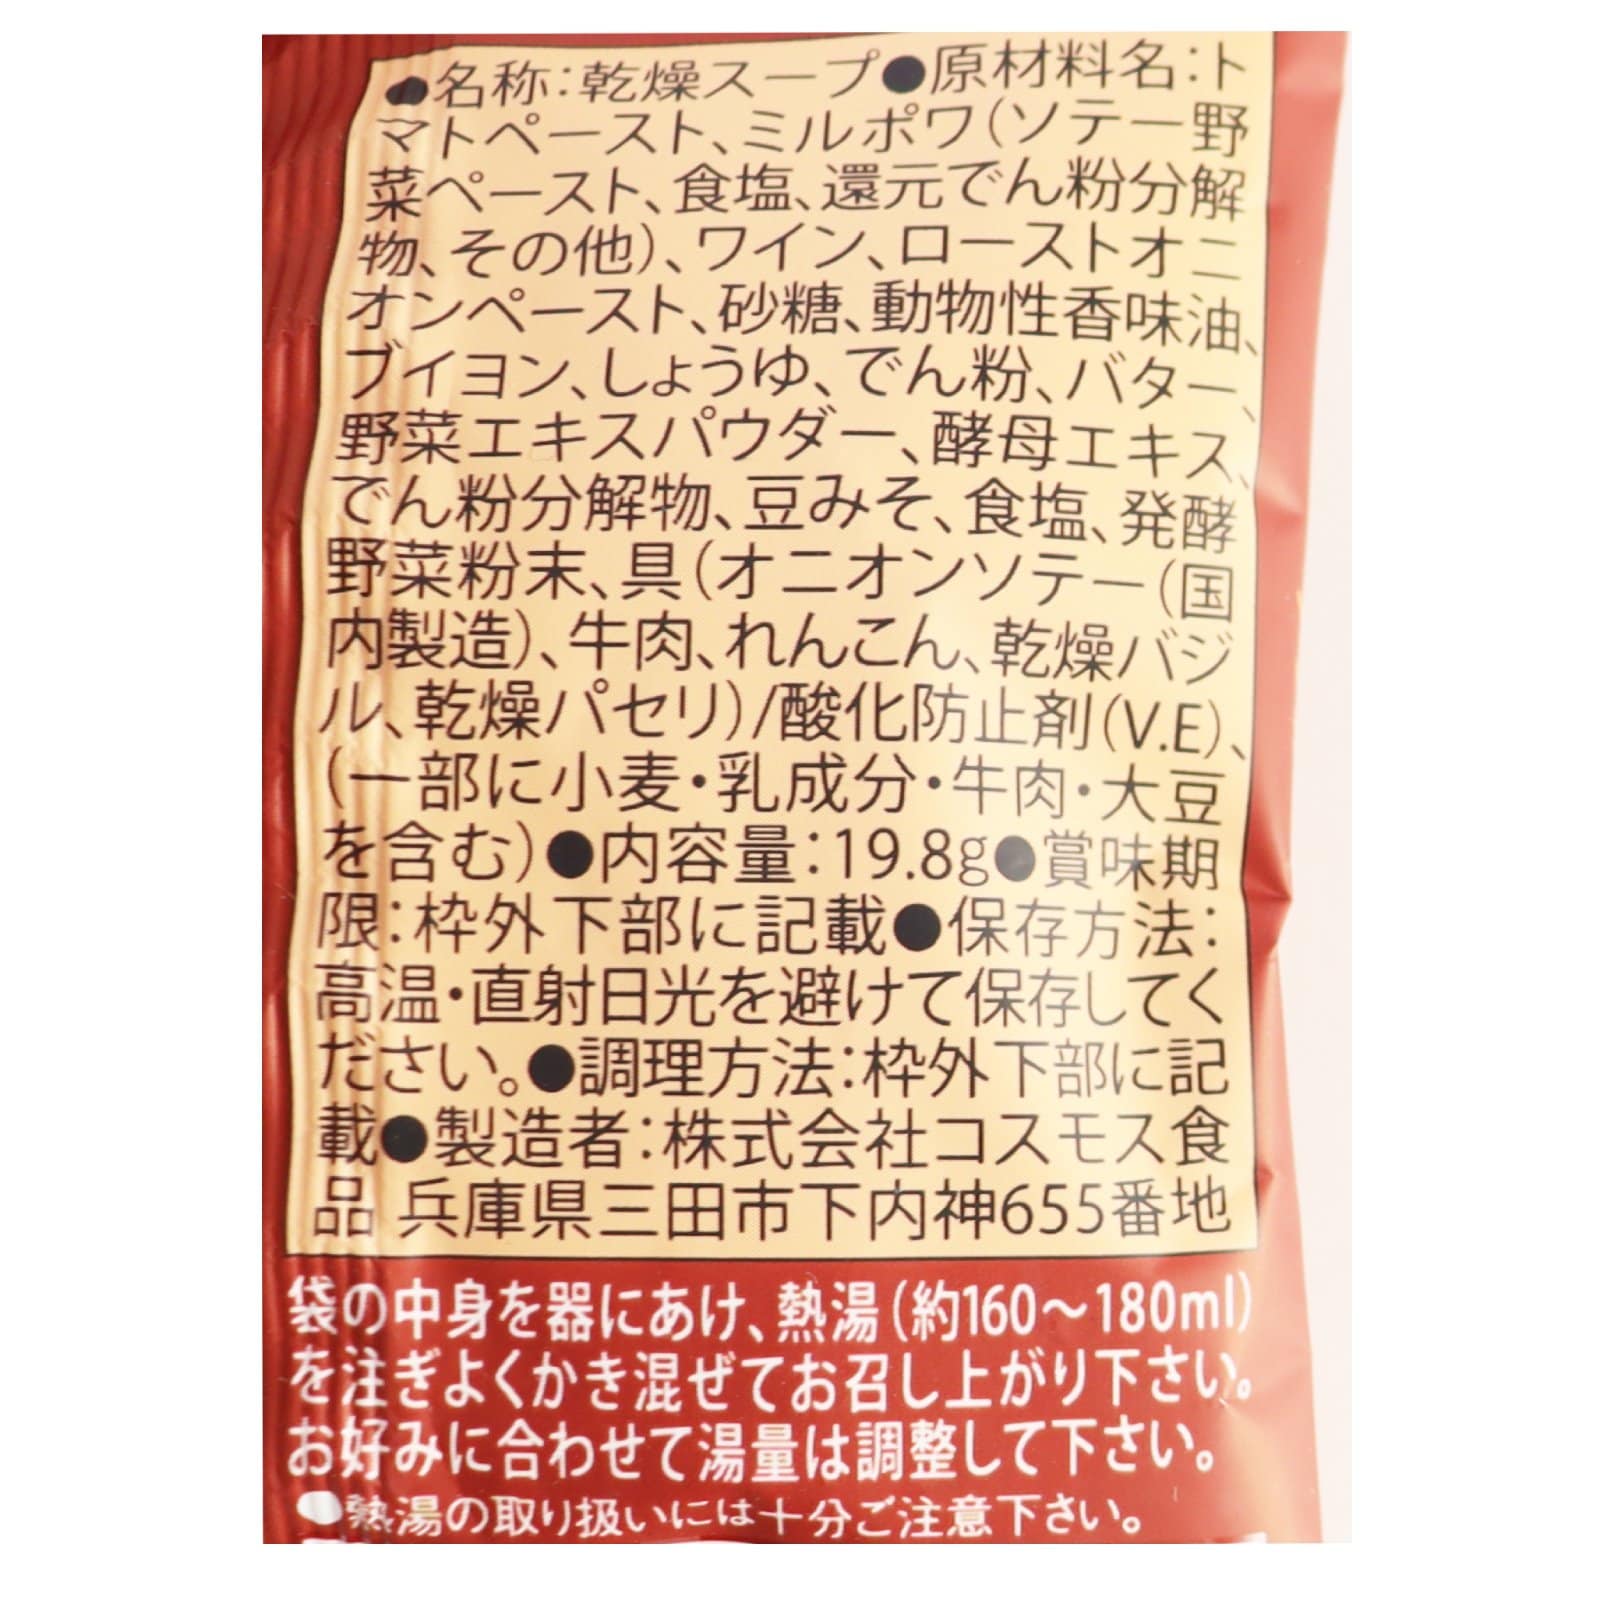 ●名称:乾燥スープ●原材料名:ト
マトペースト、ミルポワ(ソテー野
菜ペースト、食塩、還元でん粉分解
物、その他)、ワイン、ローストオニ
オンペースト、砂糖、動物性香味油、
ブイヨン、しょうゆ、でん粉、バター、
野菜エキスパウダー、酵母エキス、
でん粉分解物、豆みそ、食塩、発酵
野菜粉末、具(オニオンソテー(国
内製造)、牛肉、れんこん、乾燥バジ
ル、乾燥パセリ)/酸化防止剤(V.E)、
(一部に小麦・乳成分・牛肉・大豆
を含む)●内容量:19.8g●賞味期
限:枠外下部に記載●保存方法:
高温・直射日光を避けて保存してく
ださい。●調理方法:枠外下部に記
載●製造者:株式会社コスモス食
品 兵庫県三田市下内神655番地
袋の中身を器にあけ、熱湯(約160～180ml)
を注ぎよくかき混ぜてお召し上がり下さい。
お好みに合わせて湯量は調整して下さい。
●熱湯の取り扱いには十分ご注意下さい。